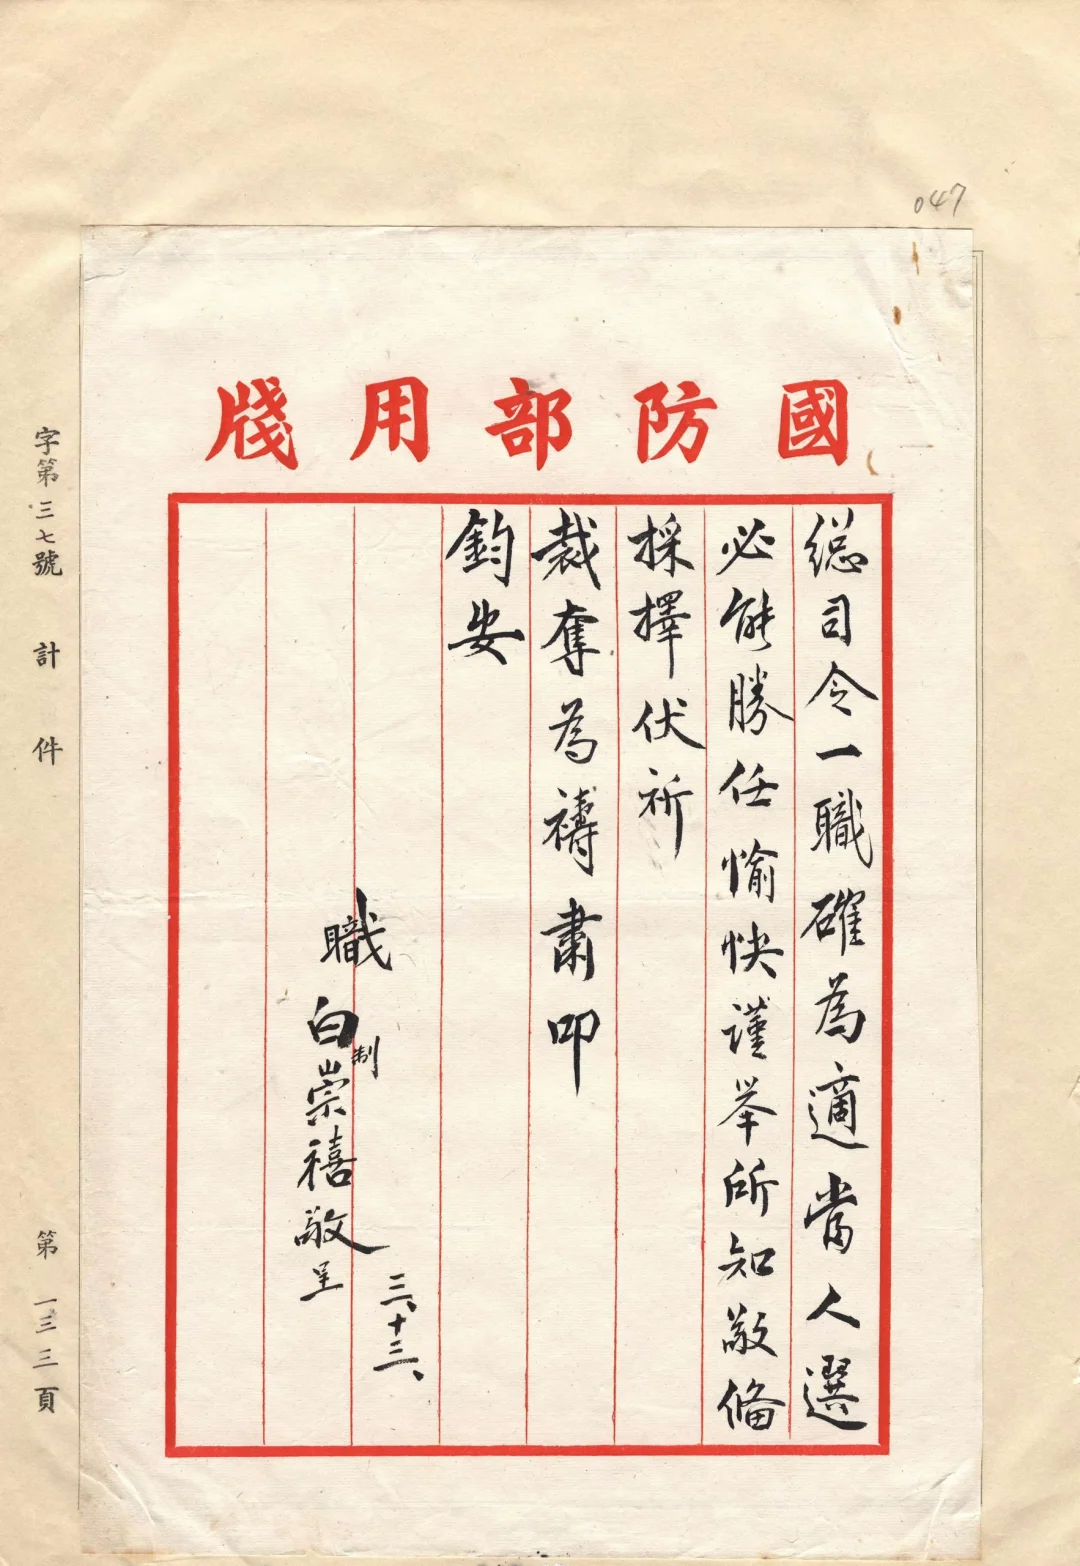 047
國防部用牋
総司令一職確為適當人選
必能勝任愉快謹举所知敬俻
採擇伏祈
裁奪為禱肅叩
鈞安
職白制崇禧敬呈
三、十三、
字第三七號 計 件 第一三三頁